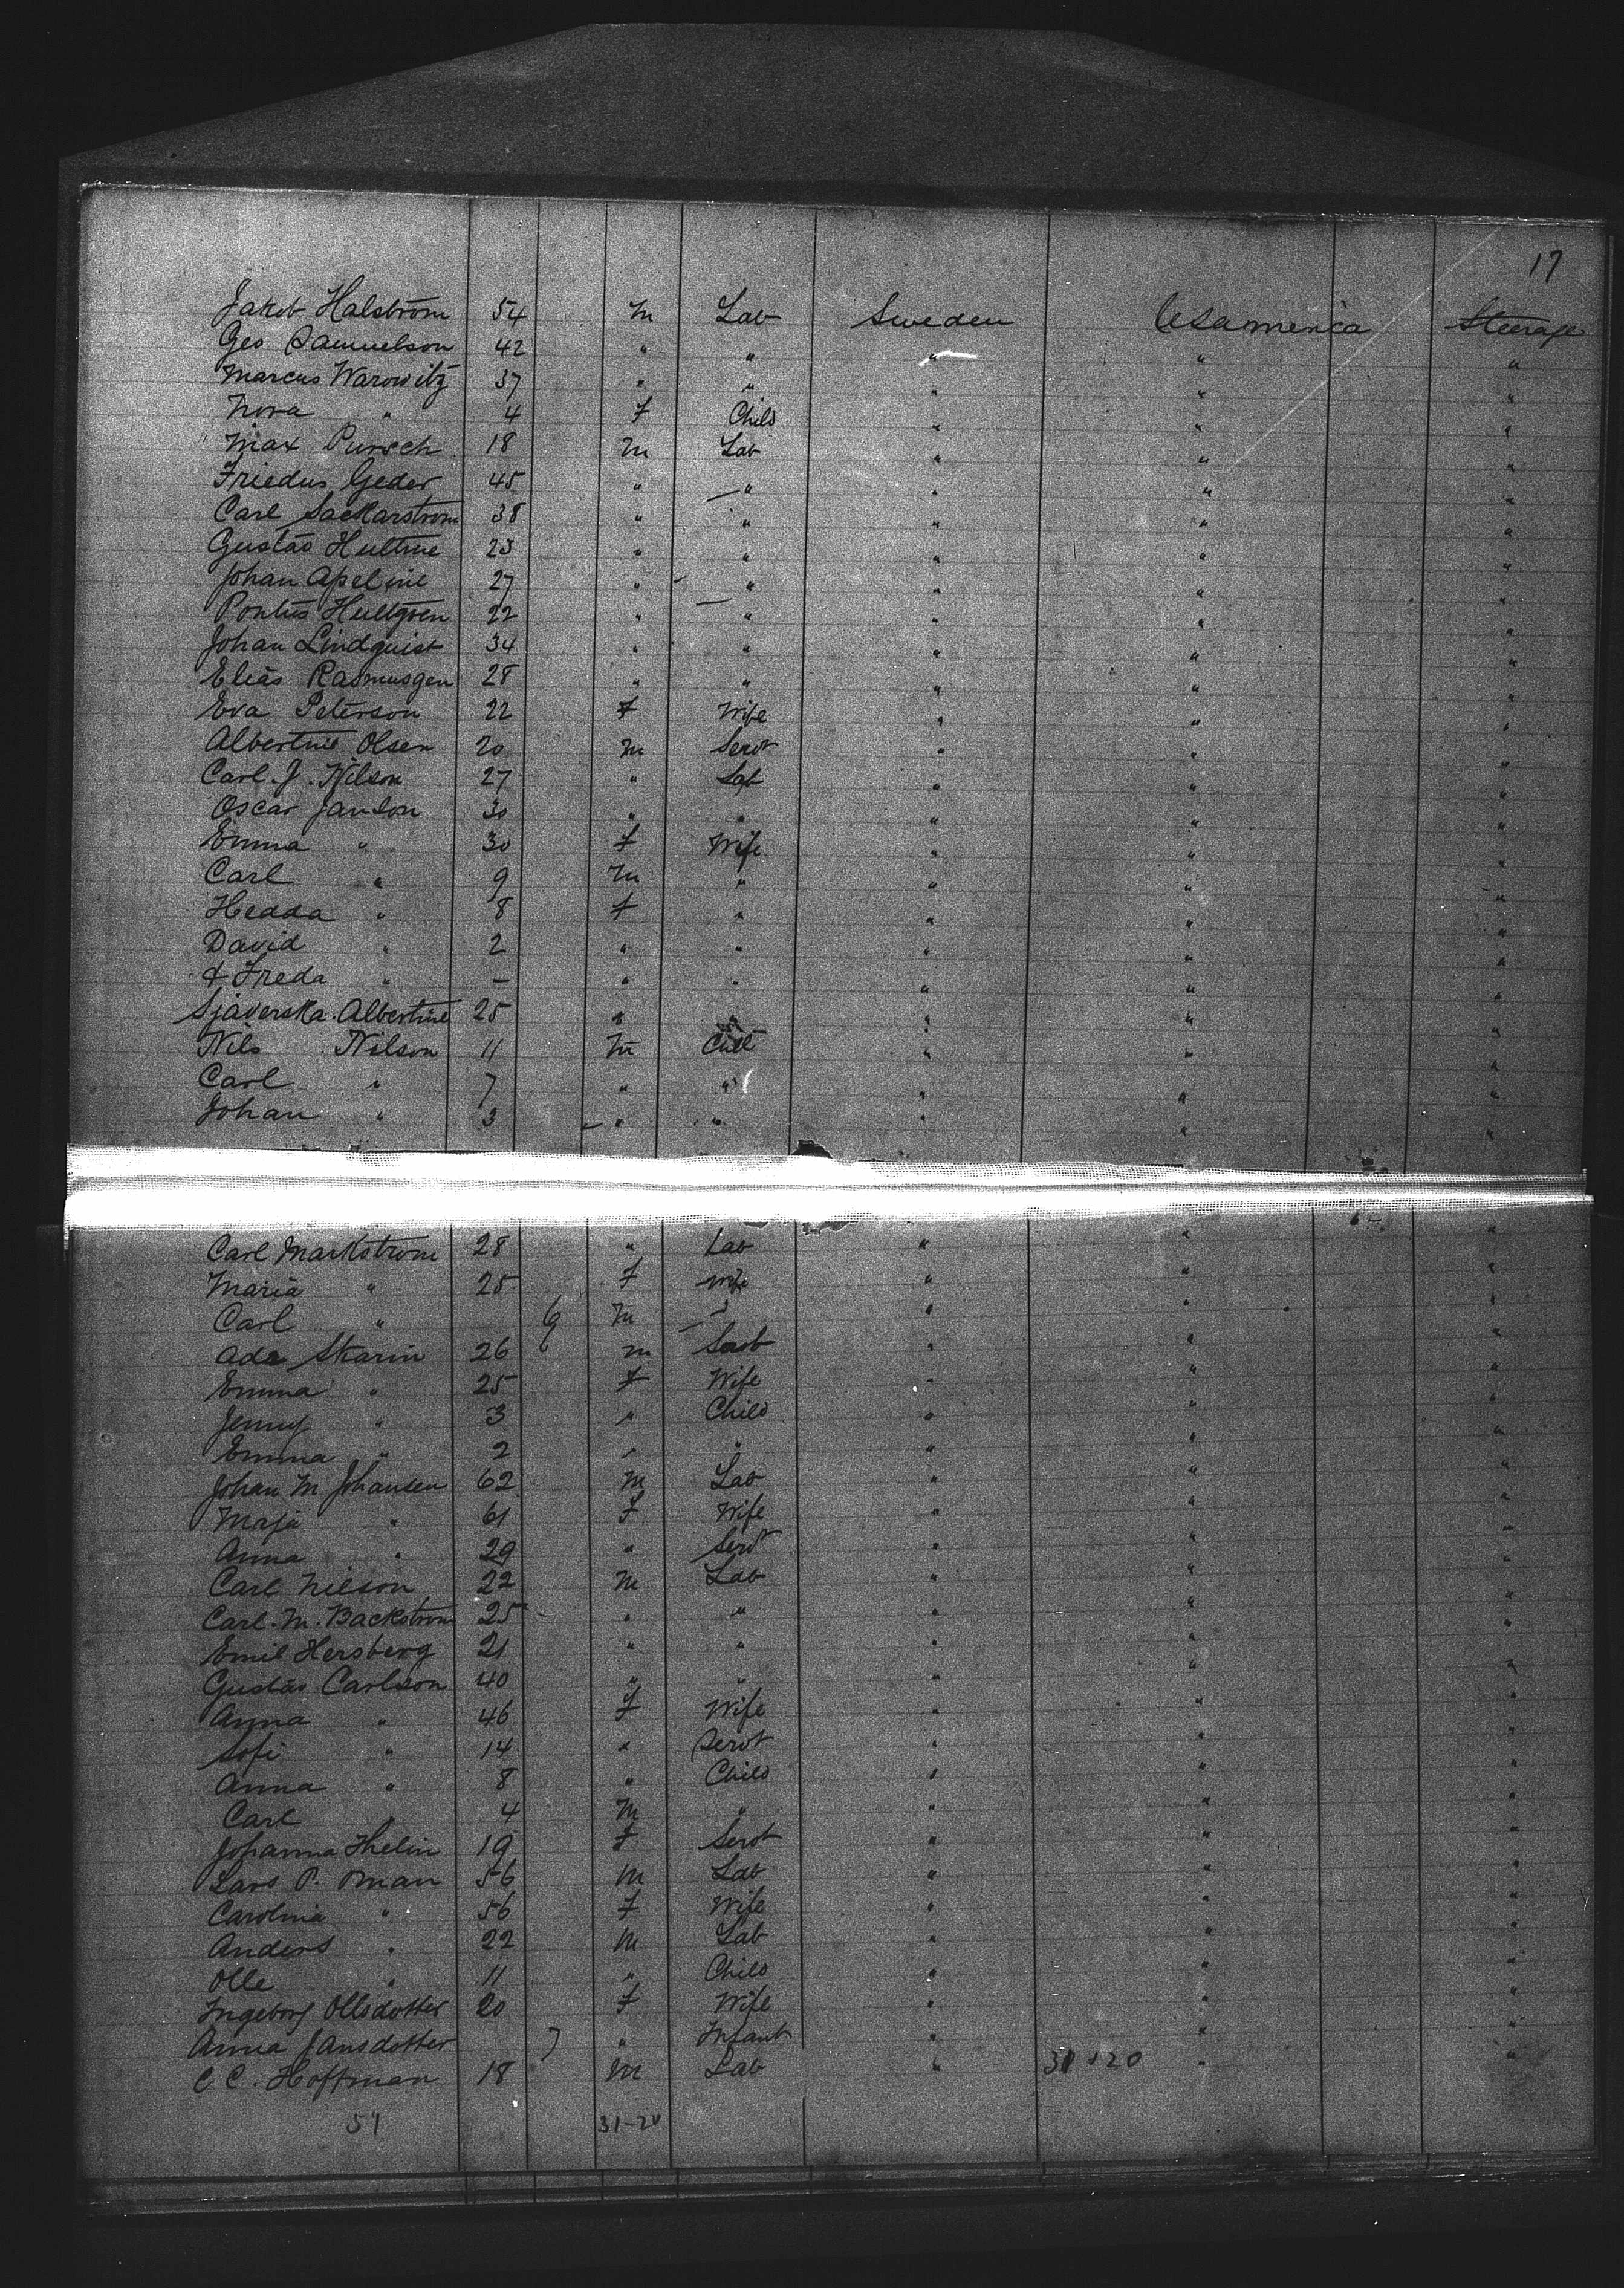 17
Jakob Halström 54 M Lab Sweden USamerica Steerage
Geo Samuelson 42 " " " " "
Marcus Warowitz 37 " " " " "
Nora " 4 F Child " " "
Max Pursch 18 M Lab " " "
Friedus Geder 45 " " " " "
Carl Sackarstrom 38 " " " " "
Gustav Hultine 23 " " " " "
Johan Apeline 27 " " " " "
Pontus Hultgren 22 " " " " "
Johan Lindquist 34 " " " " "
Elias Rasmusgen 28 " " " " "
Eva Peterson 22 F Wife " " "
Albertine Olsen 20 M Servt " " "
Carl. J. Nilson 27 " Lab " " "
Oscar Janson 30 " " " " "
Emma " 30 F Wife " " "
Carl " 9 M " " " "
Hedda " 8 F " " " "
David " 2 " " " " "
& Freda " – " " " " "
Sjaverska Albertine 25 " " " " "
Nils Nilson 11 M " " "
Carl " 7 " " " " "
Johan " 3 " " " " "
Carl Markstrom 28 " Lab " " "
Maria " 25 F Wife " " "
Carl " 6 M " " " "
Ada Skarin 26 m Servt " " "
Emma " 25 F Wife " " "
Jenny " 3 " Child " " "
Emma " 2 " " " " "
Johan M Johansen 62 M Lab " " "
Maja " 61 F Wife " " "
Anna " 29 " Servt " " "
Carl Nilson 22 M Lab " " "
Carl. M. Backstrom 25 " " " " "
Emil Hersberg 21 " " " " "
Gustav Carlson 40 " " " " "
Anna " 46 F Wife " " "
Sofi " 14 " Servt " " "
Anna " 8 " Child " " "
Carl " 4 M " " " "
Johanna Thelin 19 F Servt " " "
Lars P. Oman 56 M Lab " " "
Carolina " 56 F Wife " " "
Anders " 22 M Lab " " "
Olle " 11 " Child " " "
Ingeborg Ollsdotter 20 F Wife " " "
Anna Jansdotter 7 " Infant " " "
C C. Hoffman 18 M Lab " 31 20 " "
51 31-20